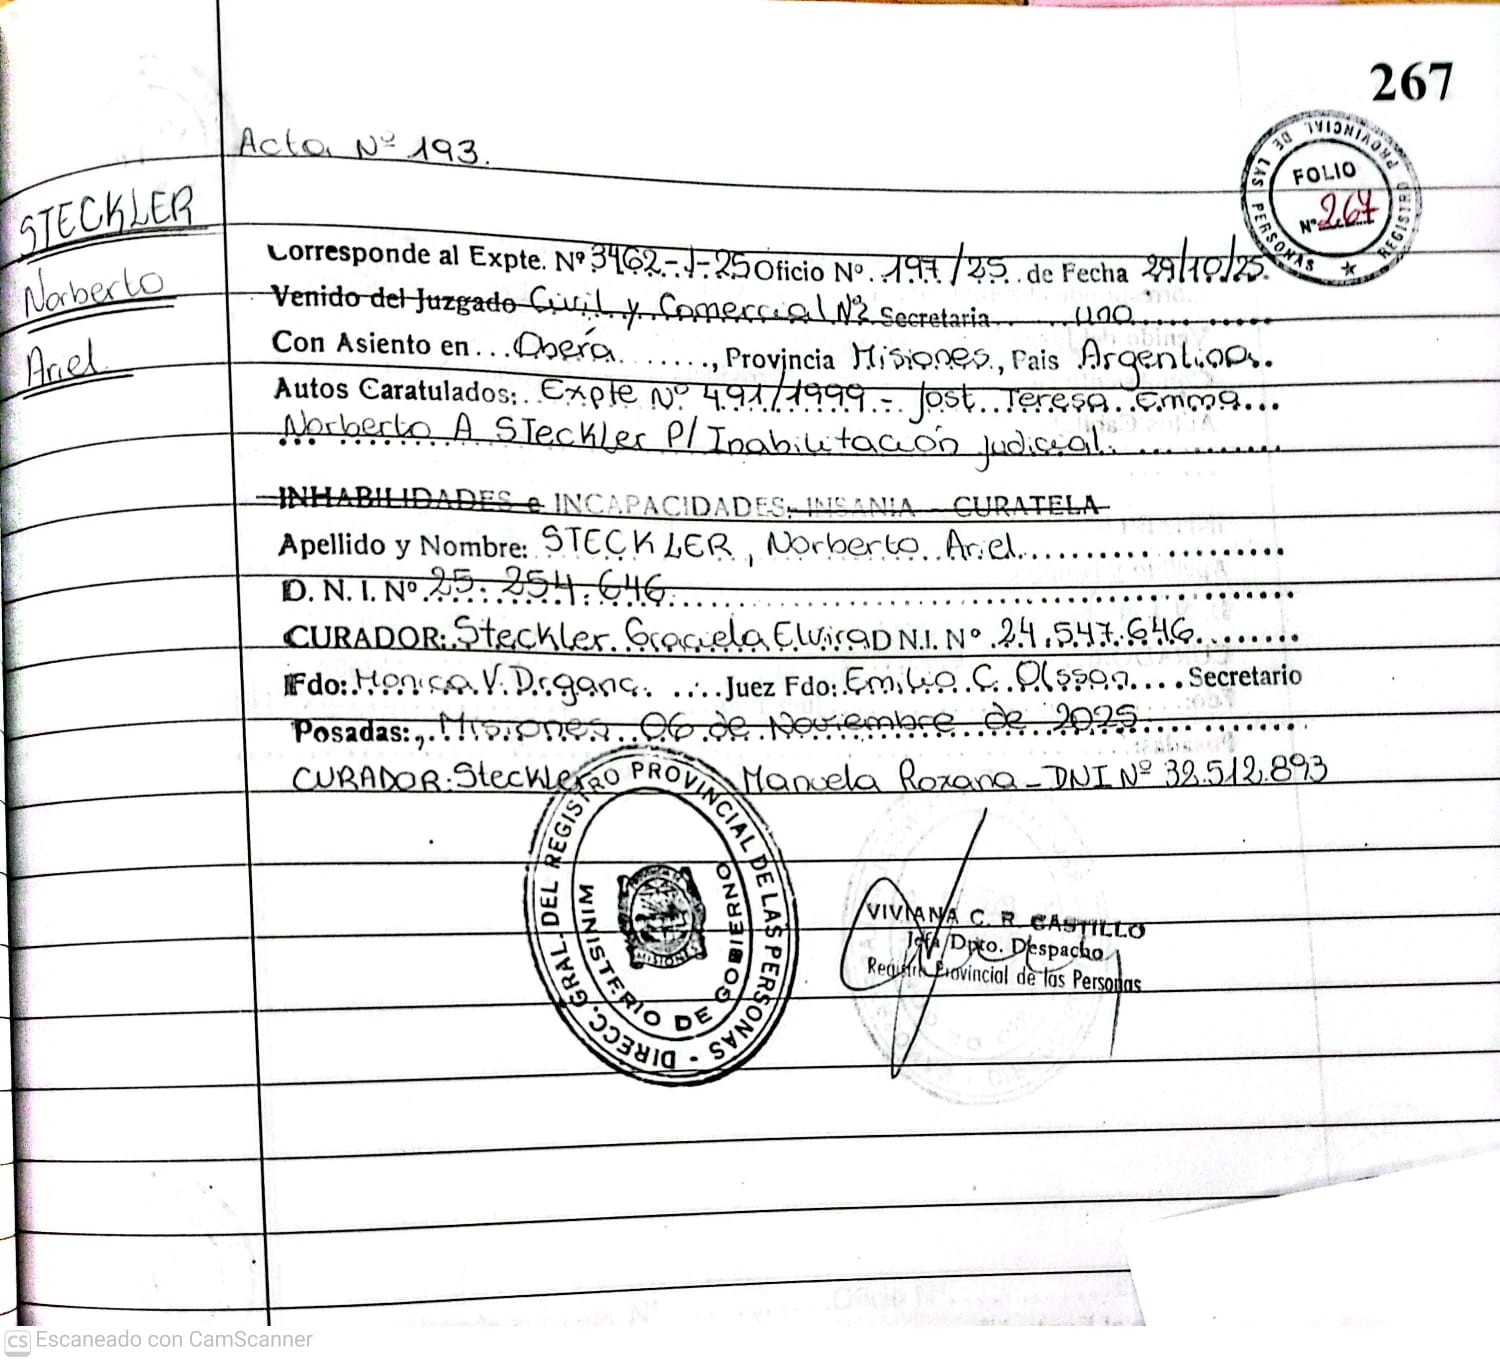 267
Acta Nº 193.
REGISTRO PROVINCIAL DE LAS PERSONAS
FOLIO
Nº 267
STECKLER
Norberto
Ariel
Corresponde al Expte. Nº 3462-J-25 Oficio Nº. 197/25. de Fecha 29/10/25.
Venido del Juzgado Civil y Comercial Nº2 Secretaria ... uno ...
Con Asiento en... Oberá ......., Provincia Misiones., Pais Argentina..
Autos Caratulados:. Expte Nº 491/1999 - Jost. Teresa. Emma...
Norberto A STeckler P/ Inabilitación judicial. ...
INHABILIDADES e INCAPACIDADES: INSANIA - CURATELA
Apellido y Nombre: STECKLER, Norberto Ariel...
D. N. I. Nº 25.254.646...
CURADOR: Steckler. Graciela Elvira D N.I. Nº 24.547.646...
Fdo: Monica V. Drganc. .... Juez Fdo: Emilio C. Olsson.... Secretario
Posadas:,. Misiones 06 de Noviembre de 2025...
CURADOR: Steckler Manuela Roxana - DNI Nº 32.512.893
DIRECC. GRAL. DEL REGISTRO PROVINCIAL DE LAS PERSONAS -
MINISTERIO DE GOBIERNO
MISIONES
VIVIANA C. R. CASTILLO
Jefa Dpto. Despacho
Registro Provincial de las Personas
CS Escaneado con CamScanner